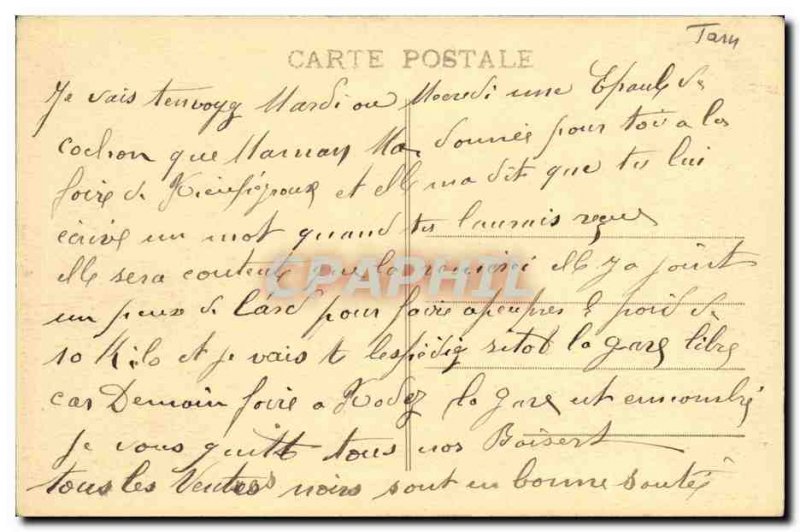 Tarn
CARTE POSTALE
Je vais tenvoyg Mardi ou Mecredi une Epaule de
cochon que Maman Ma donnée pour toi a la
foire de et elle ma dit que tu lui
ecrive un mot quand tu lauras reçue
elle sera contente elle y a joint
un peux de Lard pour faire apeupres le poid de
10 Kilo et je vais t lespédig sitot la gare libre
car Demain foire a Rodez la gare et encombré
je vous quitte tous nos Baisert
tous les Ventres noirs sont en bonne santé
CPAPHIL